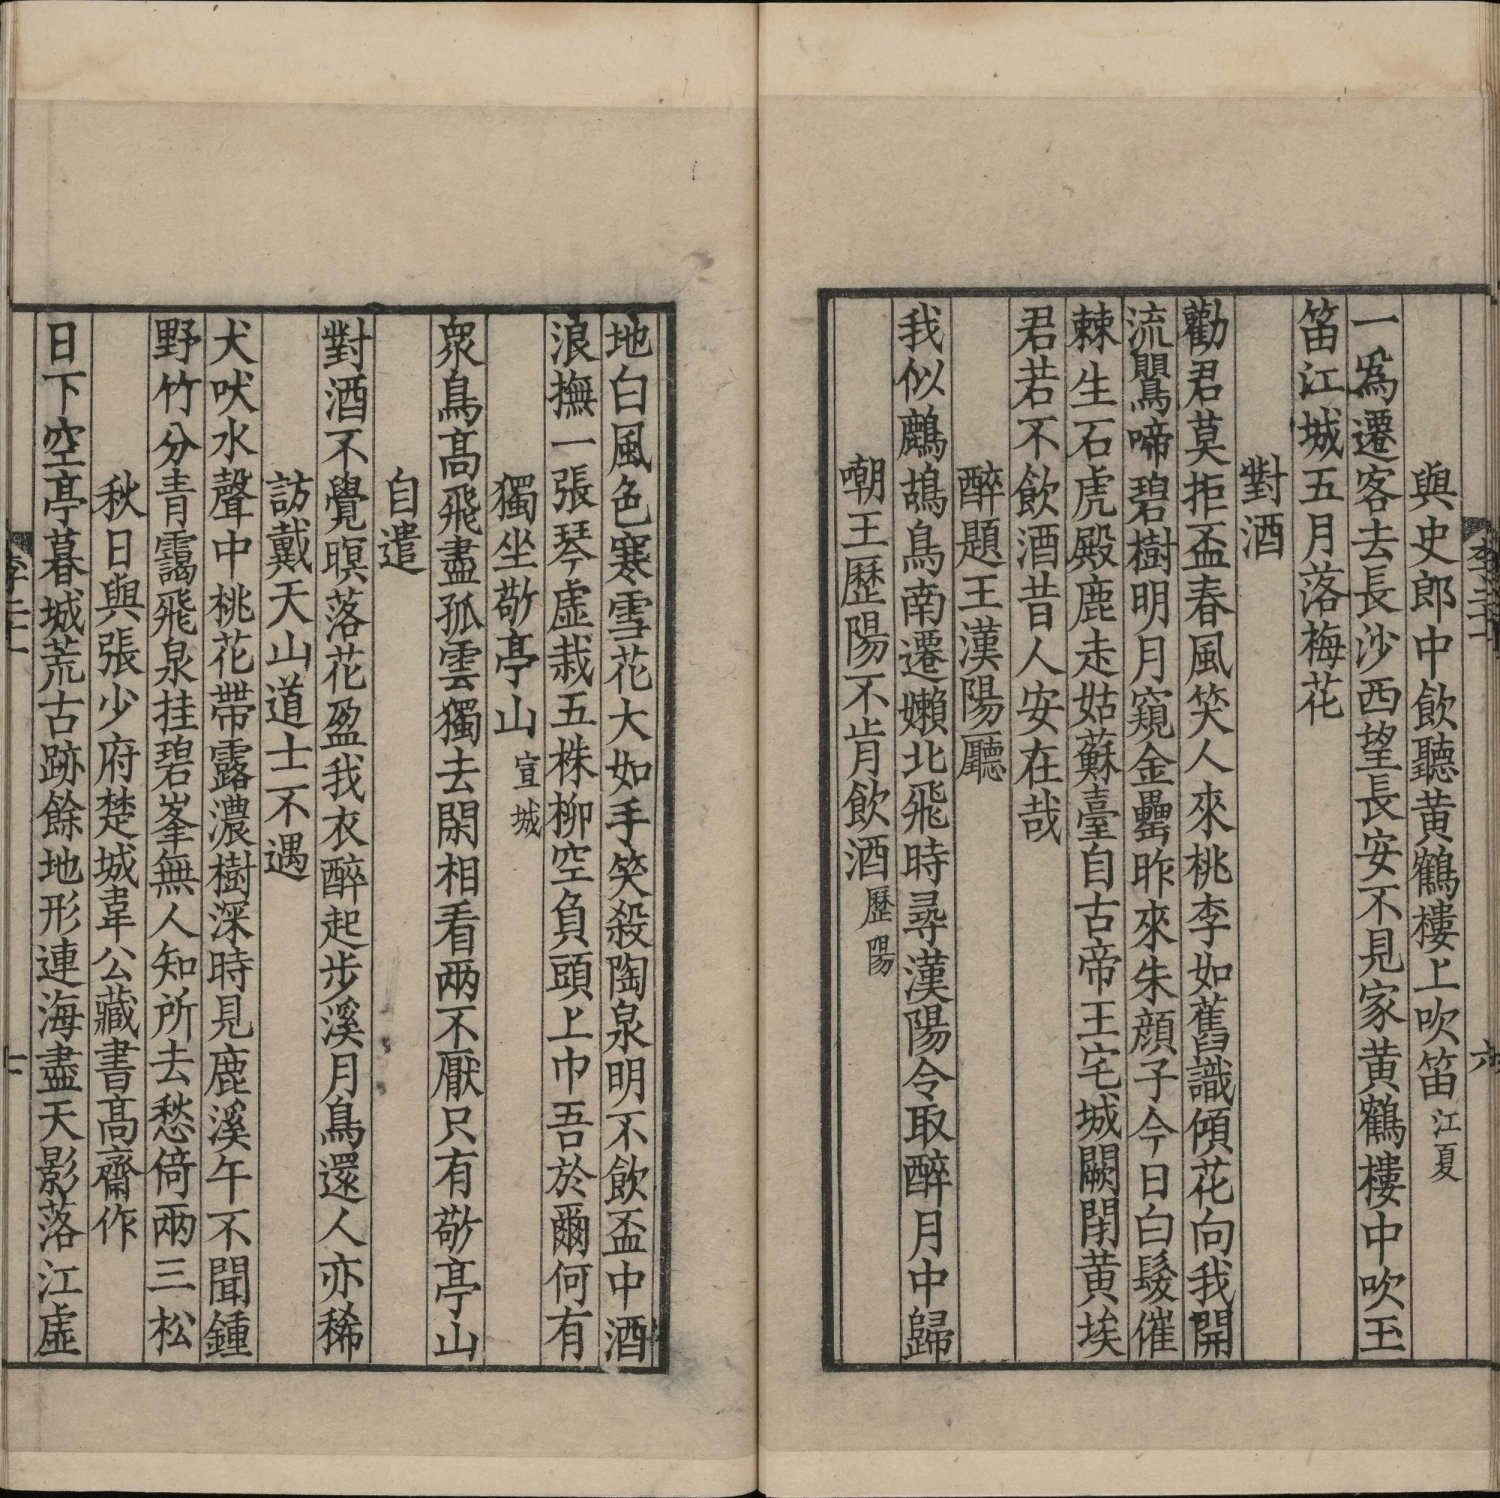 與史郎中飲聽黃鶴樓上吹笛江夏
一爲遷客去長沙西望長安不見家黃鶴樓中吹玉
笛江城五月落梅花
對酒
勸君莫拒盃春風笑人來桃李如舊識傾花向我開
流鸎啼碧樹明月窺金罍昨來朱顔子今日白髮催
棘生石虎殿鹿走姑蘇臺自古帝王宅城闕閉黃埃
君若不飲酒昔人安在哉
醉題王漢陽廳
我似鷓鴣鳥南遷嬾北飛時尋漢陽令取醉月中歸
嘲王歷陽不肯飲酒歷陽
地白風色寒雪花大如手笑殺陶泉明不飲盃中酒
浪撫一張琴虛栽五株柳空負頭上巾吾於爾何有
獨坐敬亭山宣城
衆鳥高飛盡孤雲獨去閑相看兩不厭只有敬亭山
自遣
對酒不覺暝落花盈我衣醉起步溪月鳥還人亦稀
訪戴天山道士不遇
犬吠水聲中桃花帶露濃樹深時見鹿溪午不聞鍾
野竹分青靄飛泉挂碧峯無人知所去愁倚兩三松
秋日與張少府楚城韋公藏書高齋作
日下空亭暮城荒古跡餘地形連海盡天影落江虛